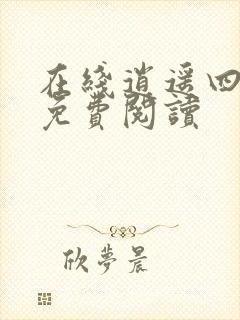 在綫逍遥四
免費閱讀
欣夢晨